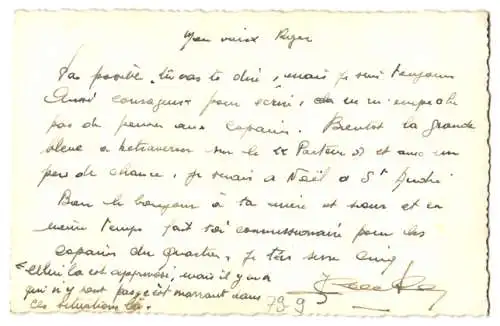 Mon vieux Roger
Pas possible tu vas te dire, mais je suis toujours
Aussi courageux pour écrire, ça ne m'empêche
pas de penser aux copains. Bientôt la grande
bleue à retraverser sur le "Pasteur" et avec un
peu de chance, je serais à Noël à St André
Bon le bonjour à ta mère et sœur et en
même temps fait toi commissionnaire pour les
copains du Quartier, je t'en serre cinq
Celui là est approprié, mais il y en a
qui n'y sont pas, c'est marrant dans
ces situations là.
79-9